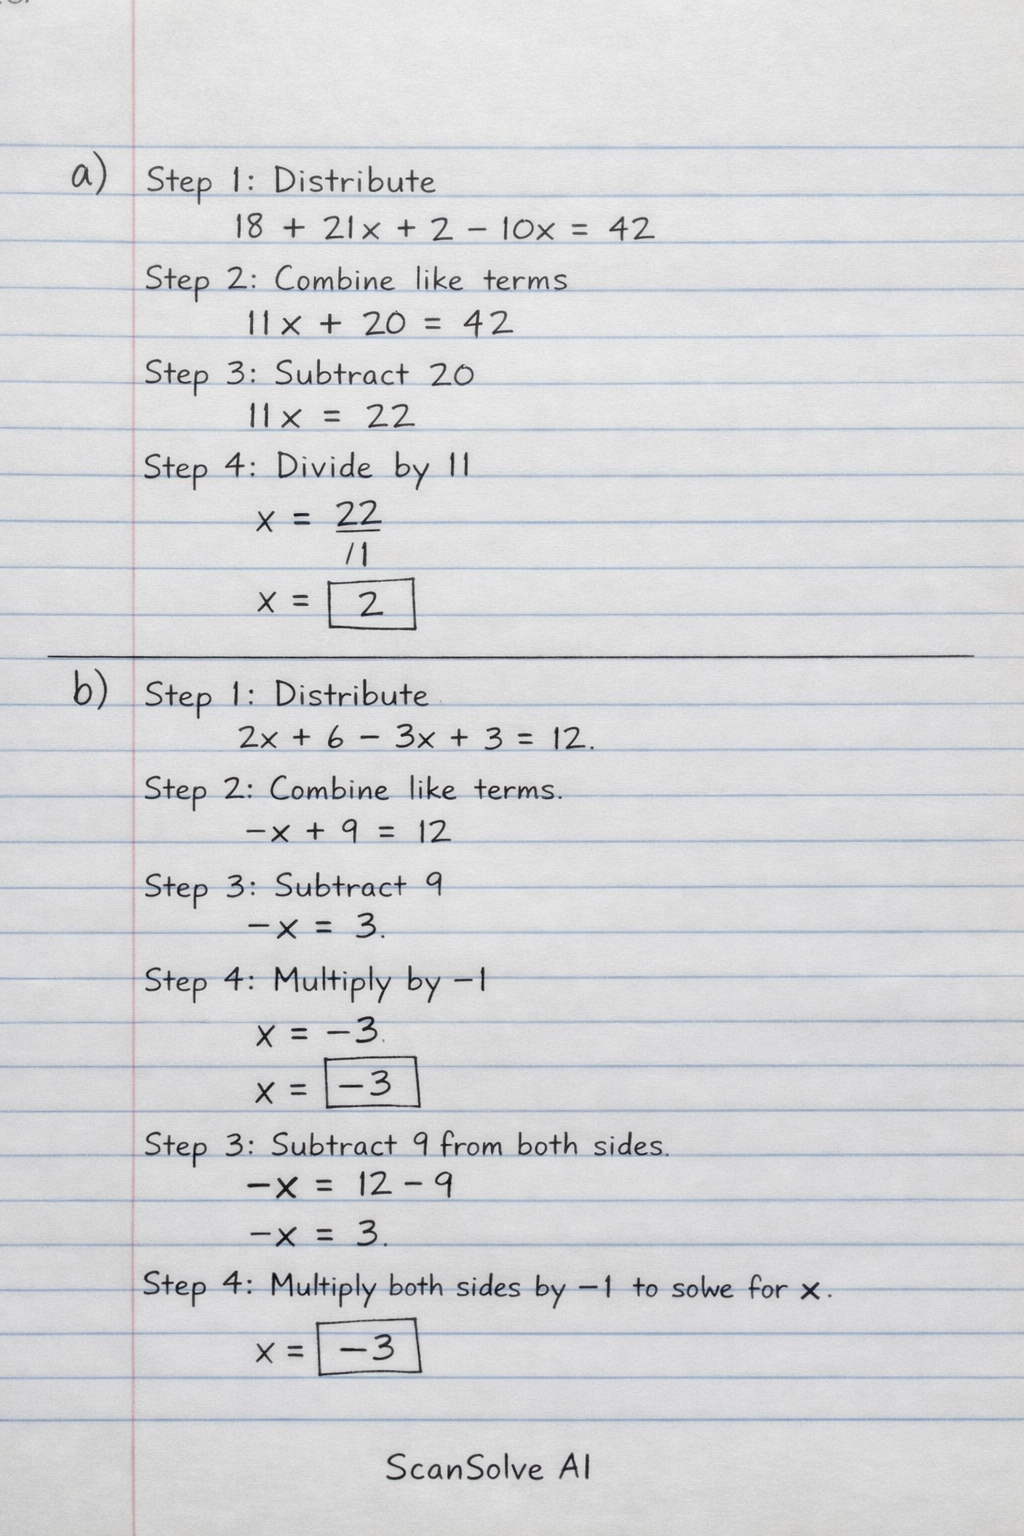 a) Step 1: Distribute
18 + 21x + 2 - 10x = 42
Step 2: Combine like terms
11x + 20 = 42
Step 3: Subtract 20
11x = 22
Step 4: Divide by 11
x = 22
11
x = 2
b) Step 1: Distribute
2x + 6 - 3x + 3 = 12.
Step 2: Combine like terms.
-x + 9 = 12
Step 3: Subtract 9
-x = 3.
Step 4: Multiply by -1
x = -3.
x = -3
Step 3: Subtract 9 from both sides.
-x = 12 - 9
-x = 3.
Step 4: Multiply both sides by -1 to solve for x.
x = -3
ScanSolve AI